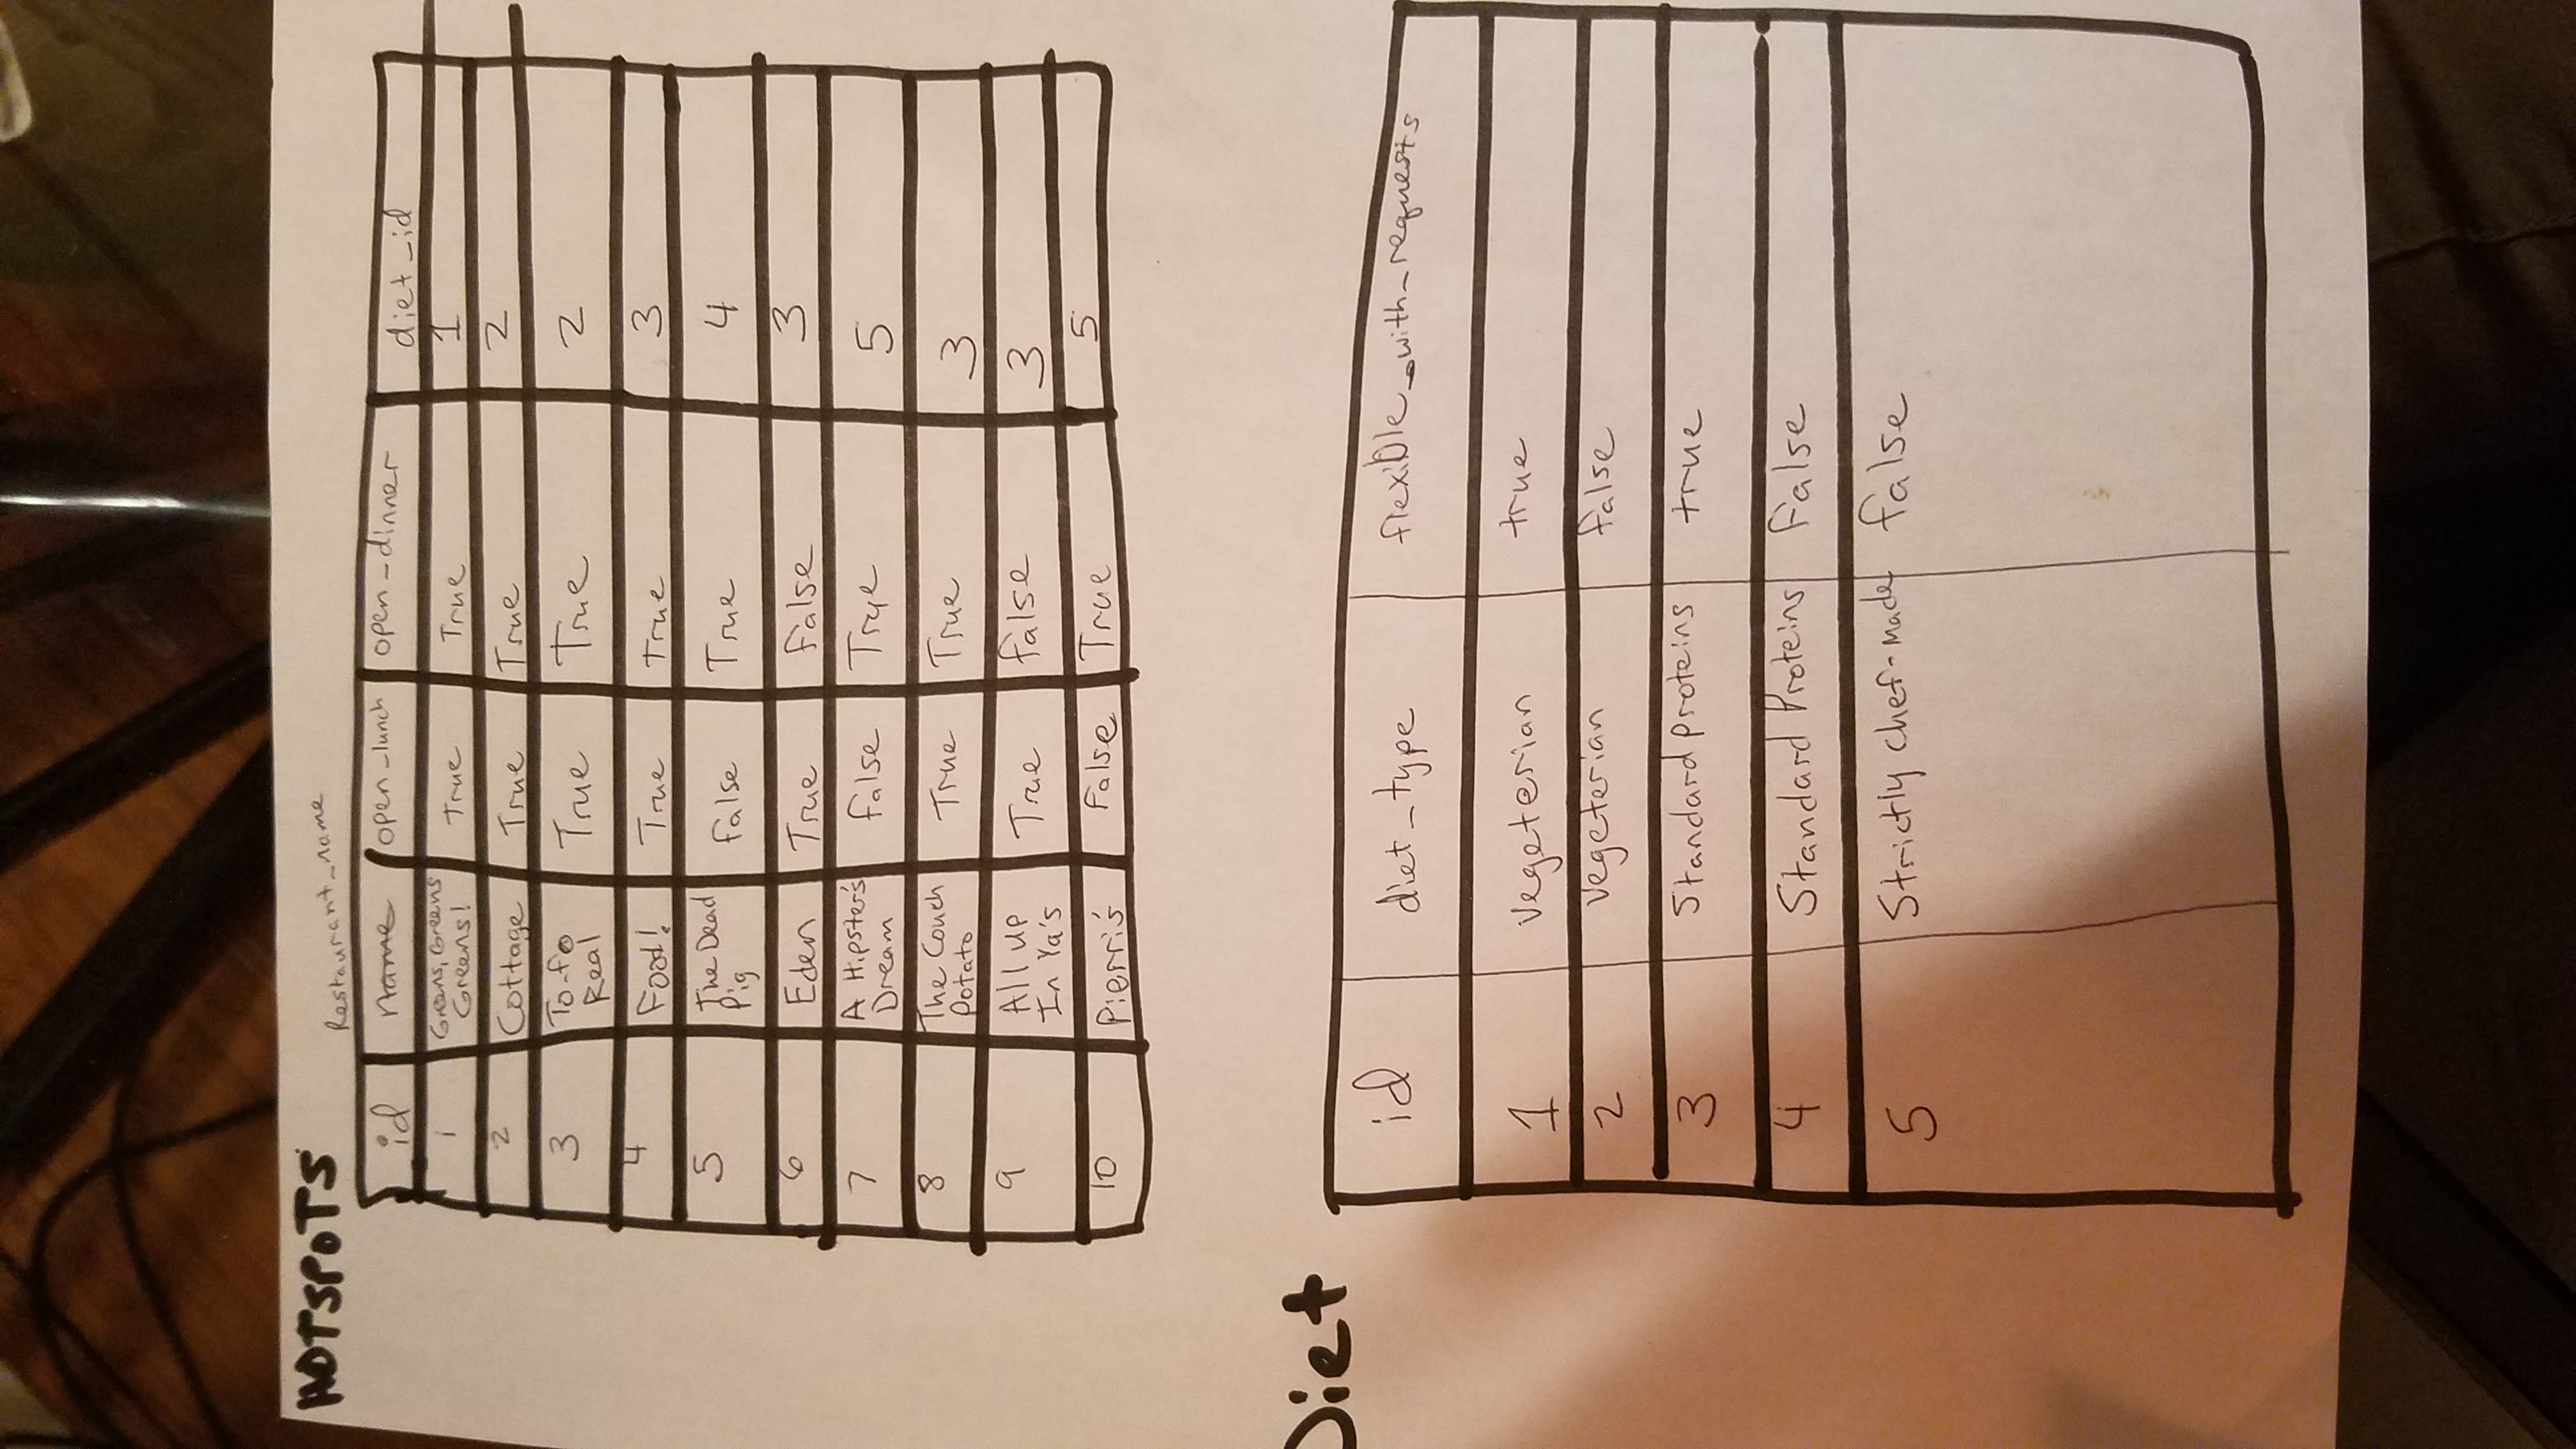 HOTSPOTS
Restaurant_name
id name open_lunch open_dinner diet_id
1 Greens, Greens True True 1
Greens!
2 Cottage True True 2
3 To-fo True True 2
Real
4 Food! True True 3
5 The Dead False True 4
Pig
6 Eden True False 3
7 A Hipster's False True 5
Dream
8 The Couch True True 3
Potato
9 All up True False 3
In Ya's
10 Pierri's False True 5
Diet
id diet_type flexible_with_requests
1 vegeterian true
2 vegeterian false
3 Standard proteins true
4 Standard Proteins False
5 Strictly chef-made false